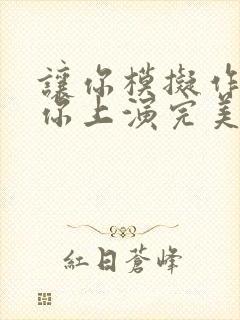 讓你模擬作
你上演完美
紅日蒼峰